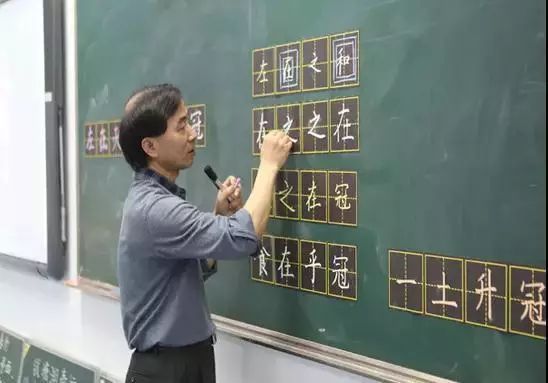 左在之和
在之之在
之在冠
食在乎冠
左在冠
一土升冠